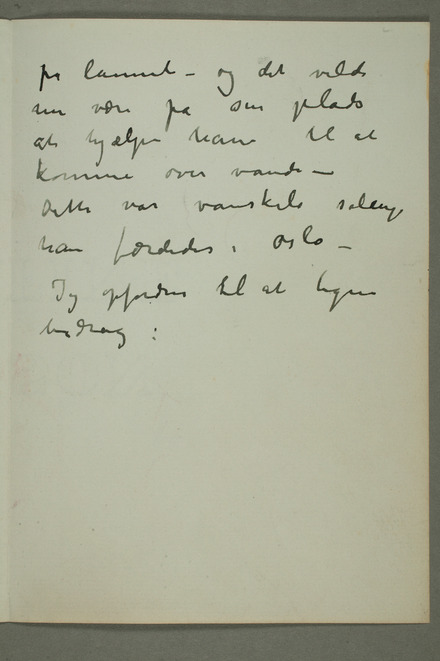 på landet – og det vilde
nu være på sin plads
at hjælpe ham til at
komme over vande –
Dette var vanskeli sålænge
han færdedes i Oslo –
Jeg opfordres til at tegne
bidrag :